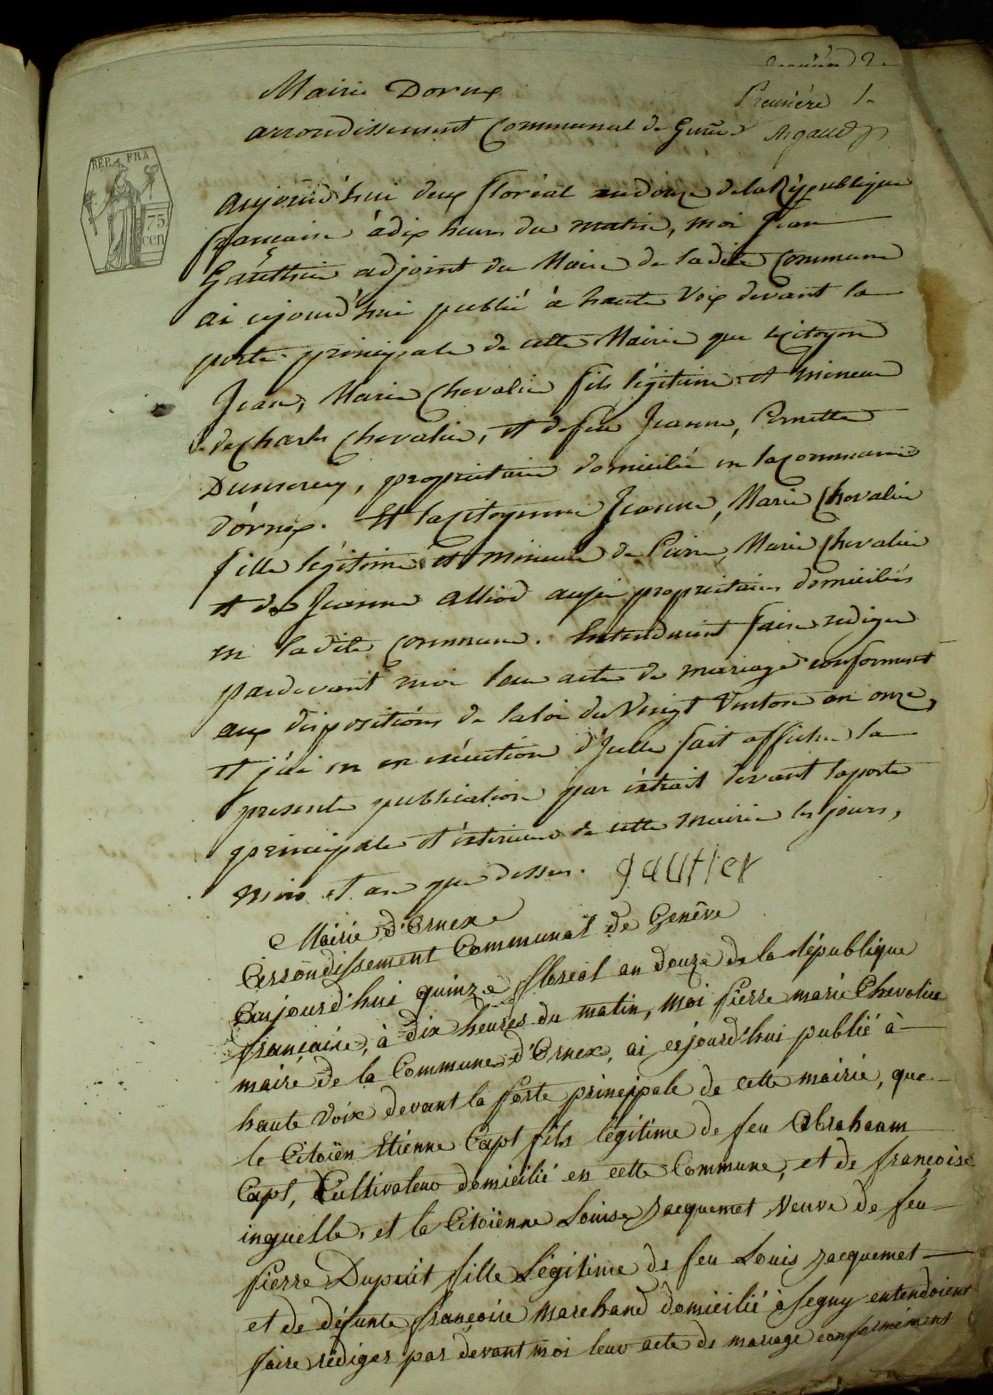 Mairie Dornex
Première
arrondissement Communal de Genève
REP. FRA.
75
cen
aujourd'hui deux floréal an douze de la République
francaise à dix heures du matin, moi Jean
Gauthier adjoint du Maire de la dite Commune
ai cejourd'hui publié à haute voix devant la
porte principale de cette Mairie que le Citoyen
Jean, Marie Chevalier fils légitime et mineur
de Charles Chevalier, et de feu Jeanne, Pernette
propriétaire domicilié en la Commune
d'ornex. Et la Citoyenne Jeanne, Marie Chevalier
fille légitime et mineure de Pierre, Marie Chevalier
et de Jeanne Alliod aussi propriétaires domiciliés
en la dite Commune. Entendaient faire rediger
pardevant moi leur acte de mariage conforment
aux dispositions de la loi du Vingt Ventose an onze,
et j'ai en en exécution d'Icelle fait afficher la
presente publication par extrait devant la porte
principale et exterieure de cette mairie les jours,
mois et an que dessus. gautier
Mairie d'Ornex
Arrondissement Communal de Genêve
Aujourd'hui quinze floreal an douze de la république
francaise, à dix heures du matin, moi Pierre marie Chevalier
maire de la Commune d'Ornex, ai cejourd'hui publié à
haute voix devant la porte principale de cette mairie, que
le Citoïen Etienne Capt fils légitime de feu Abraham
Capt, Cultivateur domicilié en cette Commune, et de françoise
inguelle, et la Citoïenne Louise Jacquemet Veuve de feu
Pierre Dupuit fille Légitime de feu Louis Jacquemet
et de défunte françoise marchand domicilié à Segny entendoient
faire rédiger par devant moi leur acte de mariage conformément